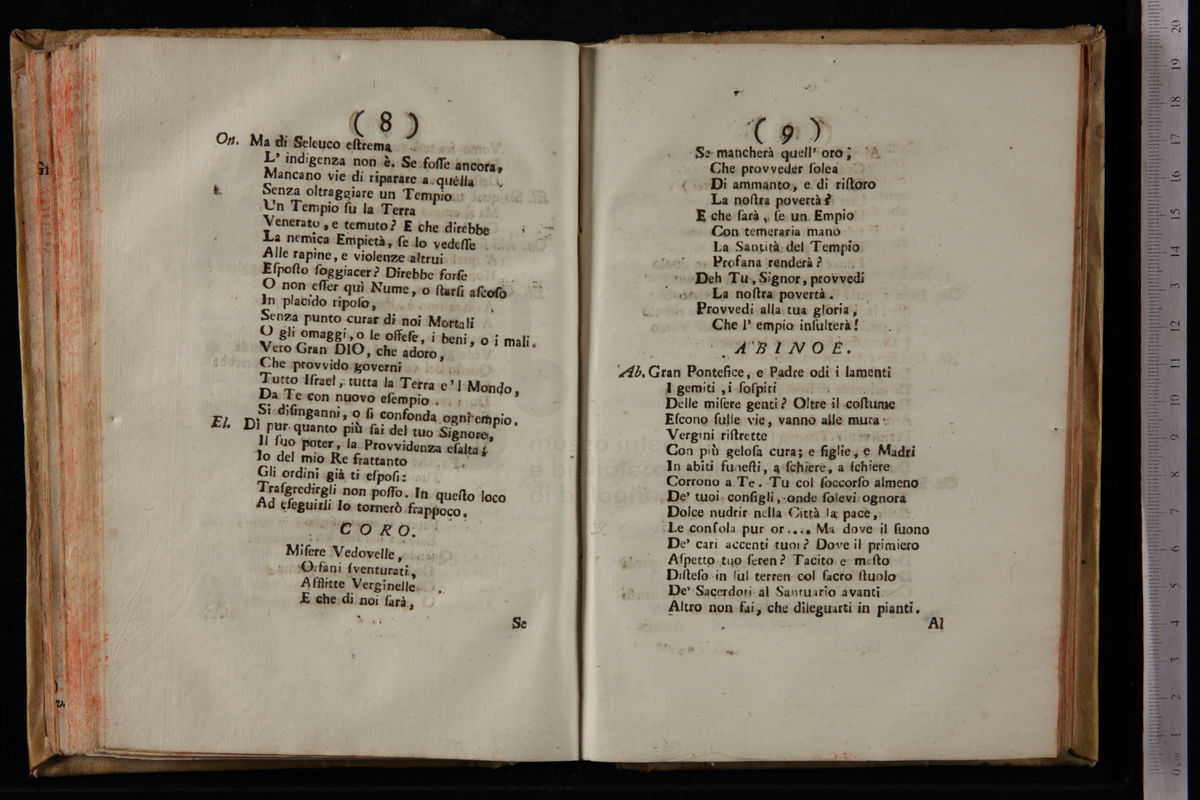 ( 8 )
On. Ma di Seleuco eſtrema
L' indigenza non è. Se foſſe ancora,
Mancano vie di riparare a quella
Senza oltraggiare un Tempio
Un Tempio ſu la Terra
Venerato, e temuto? E che direbbe
La nemica Empietà, ſe lo vedeſſe
Alle rapine, e violenze altrui
Eſpoſto ſoggiacer? Direbbe forſe
O non eſſer quì Nume, o ſtarſi aſcoſo
In placido ripoſo,
Senza punto curar di noi Mortali
O gli omaggi, o le offeſe, i beni, o i mali.
Vero Gran DIO, che adoro,
Che provvido governi
Tutto Iſrael, tutta la Terra e'l Mondo,
Da Te con nuovo eſempio
Si diſinganni, o ſi confonda ogni empio.
El. Di pur quanto più ſai del tuo Signore,
Il ſuo poter, la Provvidenza eſalta;
Io del mio Re frattanto
Gli ordini già ti eſpoſi:
Traſgredirgli non poſſo. In queſto loco
Ad eſeguirli Io tornerò frappoco.
CORO.
Miſere Vedovelle,
Orfani ſventurati,
Afflitte Verginelle
E che di noi ſarà,
Se
( 9 )
Se mancherà quell' oro;
Che provveder ſolea
Di ammanto, e di riſtoro
La noſtra povertà?
E che ſarà, ſe un Empio
Con temeraria mano
La Santità del Tempio
Profana renderà?
Deh Tu, Signor, provvedi
La noſtra povertà.
Provvedi alla tua gloria,
Che l' empio inſulterà!
ABINOE.
Ab. Gran Pontefice, e Padre odi i lamenti
I gemiti, i ſoſpiri
Delle miſere genti? Oltre il coſtume
Eſcono ſulle vie, vanno alle mura
Vergini riſtrette
Con più geloſa cura; e figlie, e Madri
In abiti funeſti, a ſchiere, a ſchiere
Corrono a Te. Tu col ſoccorſo almeno
De' tuoi configli, onde ſolevi ognora
Dolce nudrir nella Città la pace,
Le conſola pur or.... Ma dove il ſuono
De' cari accenti tuoi? Dove il primiero
Aſpetto tuo ſeren? Tacito e meſto
Diſteſo in ſul terren col ſacro ſtuolo
De' Sacerdoti al Santuario avanti
Altro non fai, che dileguarti in pianti.
Al